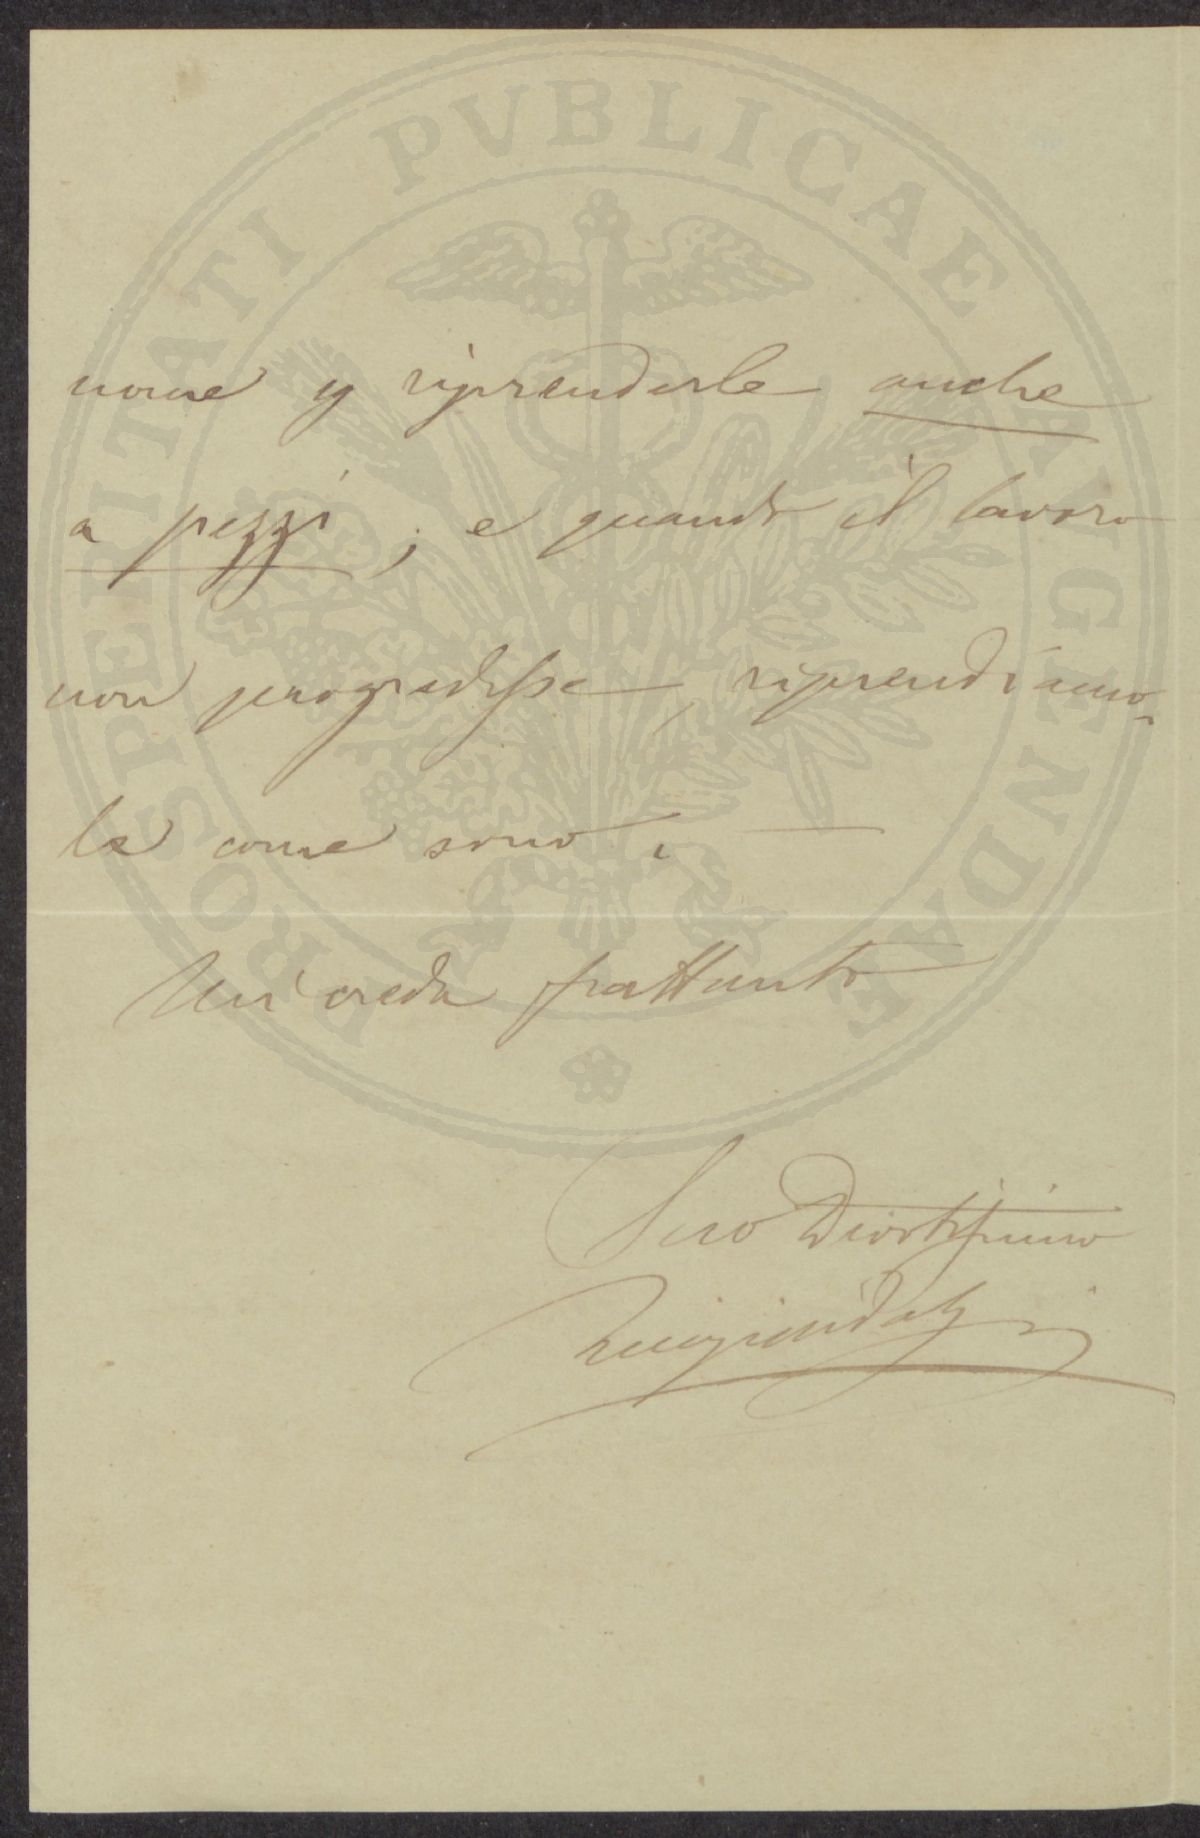 PROSPERITATI PVBLICAE AVGENDAE
nome riprenderle anche
a pezzi; e quando il lavoro
non progredisse, riprendiamo-
le come sono.
Mi creda frattanto
Suo Devotissimo